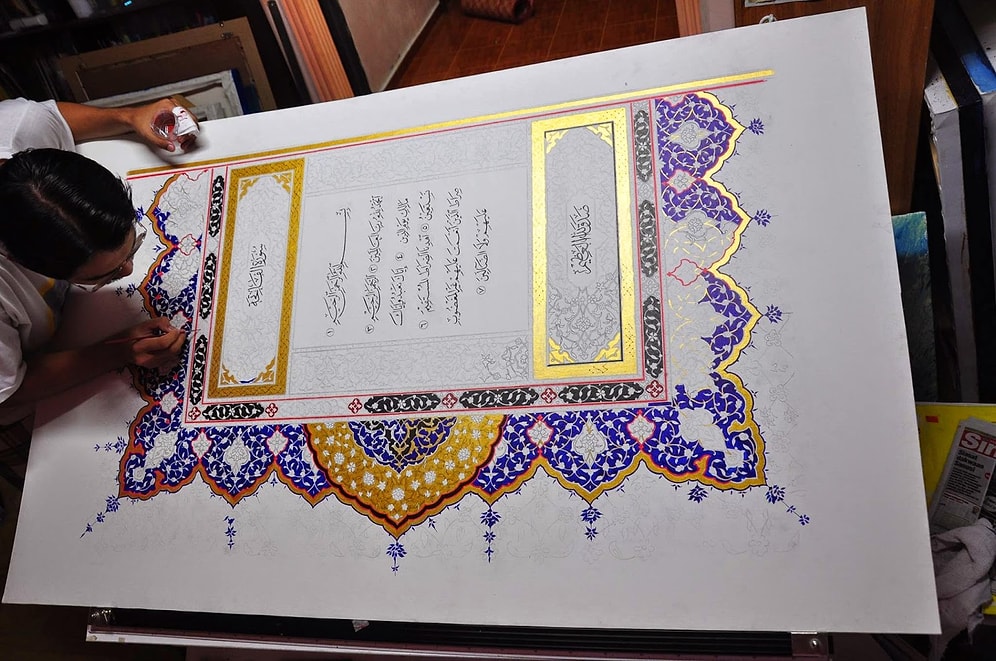 سورة الفاتحة
بسم الله الرحمن الرحيم ١
الحمد لله رب العالمين ٢ الرحمن الرحيم ٣
مالك يوم الدين ٤ إياك نعبد وإياك
نستعين ٥ اهدنا الصراط المستقيم ٦
صراط الذين أنعمت عليهم غير المغضوب
عليهم ولا الضالين ٧